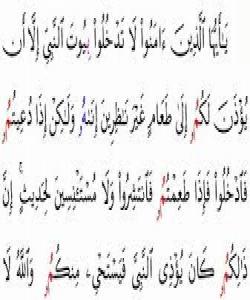 يَٰٓأَيُّهَا ٱلَّذِينَ ءَامَنُوا۟ لَا تَدْخُلُوا۟ بِيُوتَ ٱلنَّبِىِّ إِلَّآ أَن
يُؤْذَنَ لَكُمُۥ إِلَىٰ طَعَامٍ غَيْرَ نَٰظِرِينَ إِنَىٰهُ وَلَٰكِنْ إِذَا دُعِيتُمُۥ
فَٱدْخُلُوا۟ فَإِذَا طَعِمْتُمُۥ فَٱنتَشِرُوا۟ وَلَا مُسْتَـْٔنِسِينَ لِحَدِيثٍ ۚ إِنَّ
ذَٰلِكُمُۥ كَانَ يُؤْذِى ٱلنَّبِىَّ فَيَسْتَحْىِۦ مِنكُمُۥ وَٱللَّهُ لَا